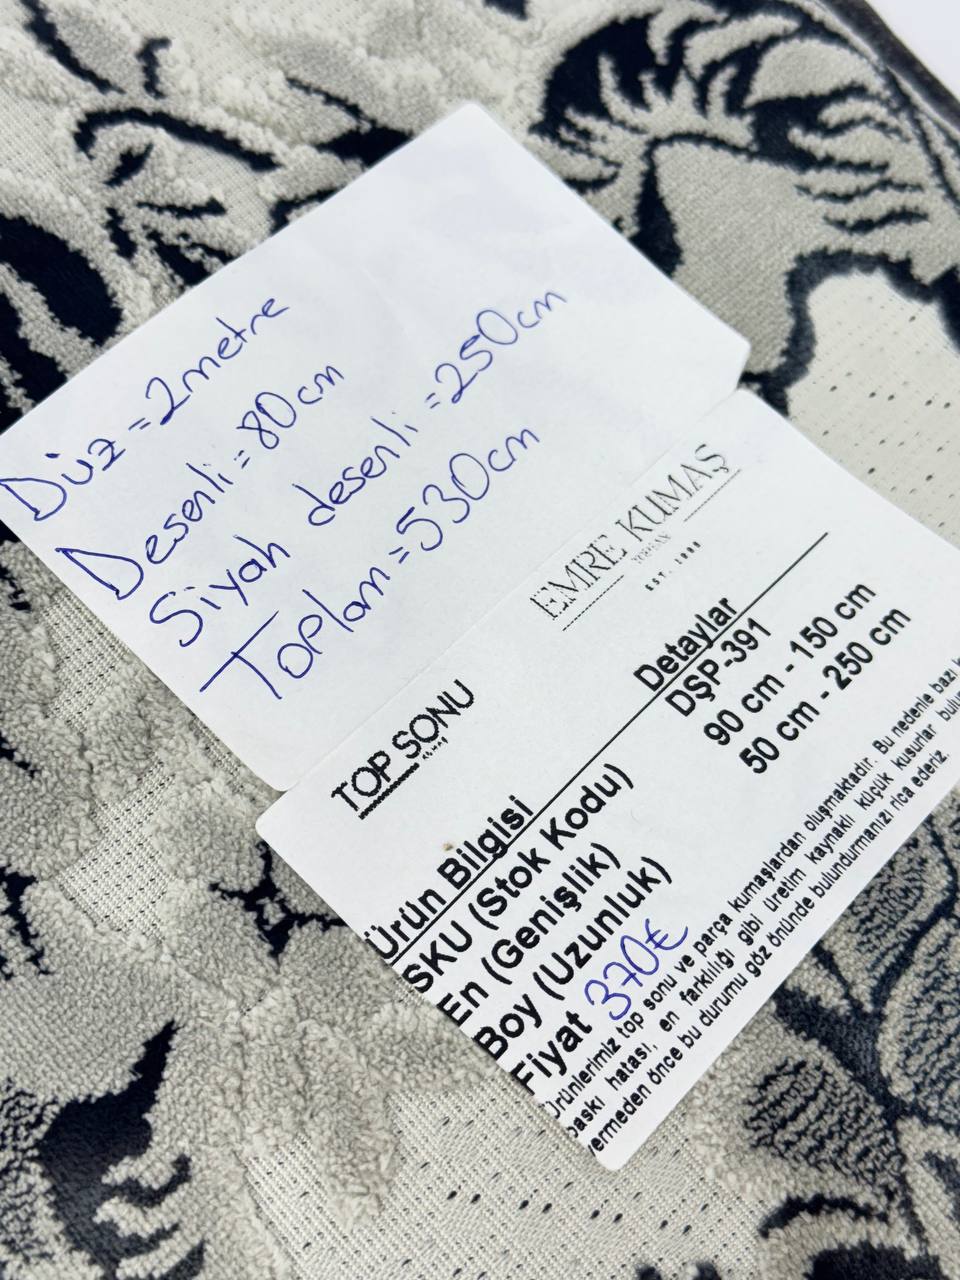 Düz = 2 metre
Desenli = 80 cm
Siyah desenli = 250 cm
Toplam = 530 cm
EMRE KUMAŞ
TOPTAN
EST. 1988
TOP SONU
KUMAŞ
Ürün Bilgisi Detaylar
SKU (Stok Kodu) DŞP-391
En (Genişlik) 90 cm - 150 cm
Boy (Uzunluk) 50 cm - 250 cm
Fiyat 370€
Ürünlerimiz top sonu ve parça kumaşlardan oluşmaktadır. Bu nedenle bazı
baskı hatası, en farklılığı gibi üretim kaynaklı küçük kusurlar
vermeden önce bu durumu göz önünde bulundurmanızı rica ederiz.